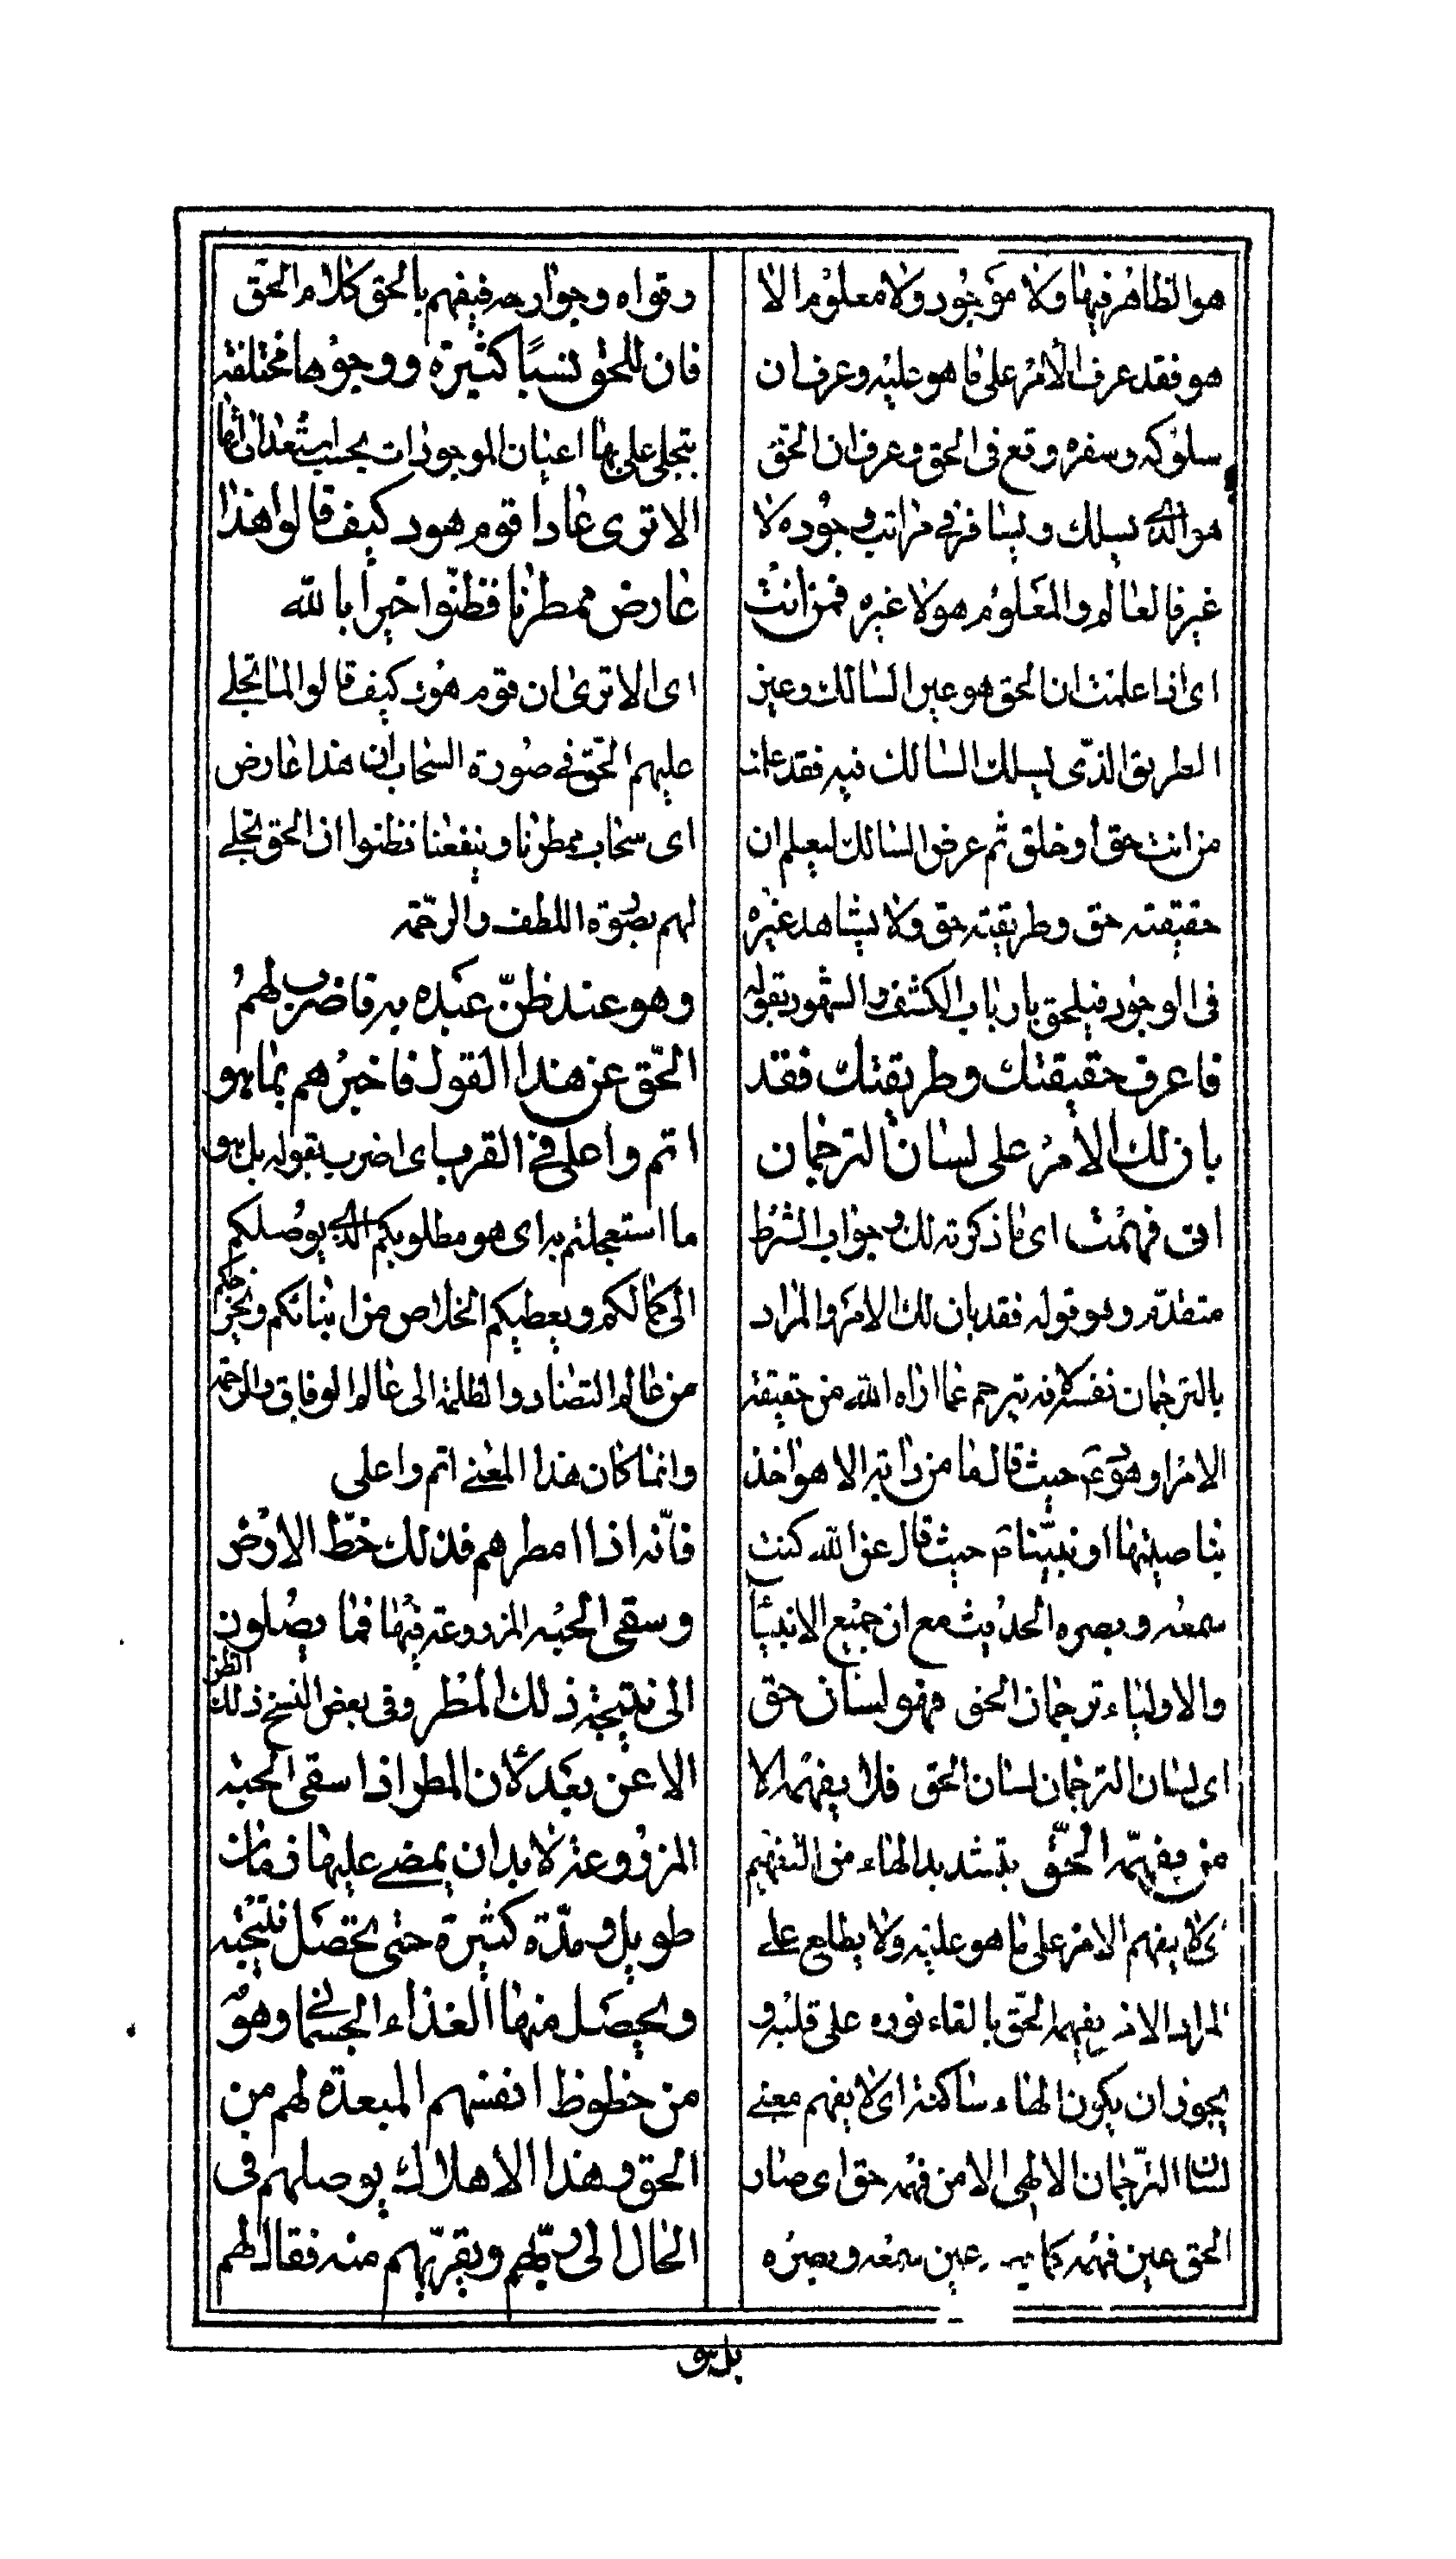 هو الظاهر فيها ولا موجود ولا معلوم الا
هو فقد عرف الامر على ما هو عليه وعرف ان
سلوكه وسفره وقع فى الحق وعرف ان الحق
هو الذى يسلك ويسافر فى مراتب وجوده لا
غير فالعالم والمعلوم هو لا غيره فمن انت
اى اذا علمت ان الحق هو عين السالك وعين
الطريق الذى يسلك السالك فيه فقد علمت
من انت حق او خلق ثم عرض السالك ليعلم ان
حقيقته حق وطريقته حق ولا يشاهد غيره
فى الوجود فيلحق بارباب الكشف والشهود بقوله
فاعرف حقيقتك وطريقتك فقد
بان لك الامر على لسان الترجمان
ان فهمت اى ما ذكرته لك وجواب الشرط
متقدم وهو قوله فقد بان لك الامر والمراد
بالترجمان نفسه لانه تيرجم عما اراه الله من حقيقة
الامر او هود ع م حيث قال ما من دابة الا هو اخذ
بناصيتها او نبينا م حيث قال عن الله كنت
سمعه وبصره الحديث مع ان جميع الانبياء
والاولياء ترجمان الحق فهو لسان حق
اى لسان الترجمان لسان الحق فلا يفهمه الا
من فهمه الحق بتشديد الهاء من التفهيم
اى لا يفهم الامر على ما هو عليه ولا يطلع على
المراد الا من يفهمه الحق بالقاء نوره على قلبه و
يجوز ان يكون الهاء ساكنة اى لا يفهم معنى
لسان الترجمان الالهى الا من فهمه حق اى صار
الحق عين فهمه كما به عين سمعه وبصره
وقواه وجوارحه فيفهم بالحق كلام الحق
فان للحق نسبًا كثيرة ووجوها مختلفة
يتجلى على بها اعيان الموجودات بحسب استعداداتها
الا ترى عادا قوم هود كيف قالوا هذا
عارض ممطرنا فظنّوا خيرا بالله
اى الا ترى ان قوم هود كيف قالوا لما تجلى
عليهم الحق فى صورة السحاب ان هذا عارض
اى سحاب ممطرنا وينفعنا فظنوا ان الحق تجلى
لهم بصورة اللطف والرحمة
وهو عند ظنّ عبده به فاضرب لهم
الحق عن هذا القول فاخبرهم بما هو
اتم واعلى فى القرب اى اضرب بقوله بل هو
ما استعجلتم به اى هو مطلوبكم الذى يوصلكم
الى كمالكم ويعطيكم الخلاص من انياتكم ويخرجكم
من عالم التضاد والظلمة الى عالم الوفاق والرحمة
وانما كان هذا المعنى اتم واعلى
فانّه اذا امطرهم فذلك حظّ الارض
وسقى الحبه المزروعة فيها فما يصلون
الى نتيجة ذلك المطر وفى بعض النسخ ذلك الظن
الا عن بعد لان المطر اذا سقى الحبه
المزروعة لا بد ان يمضى عليها زمان
طويل ومدّة كثيرة حتى تحصل نتيجته
ويحصل منها الغذاء الجسمانى وهو
من حظوظ انفسهم المبعدة لهم من
الحق وهذا الاهلاك يوصلهم فى
الحال الى ربّهم ويقرّبهم منه فقال لهم
بل هو